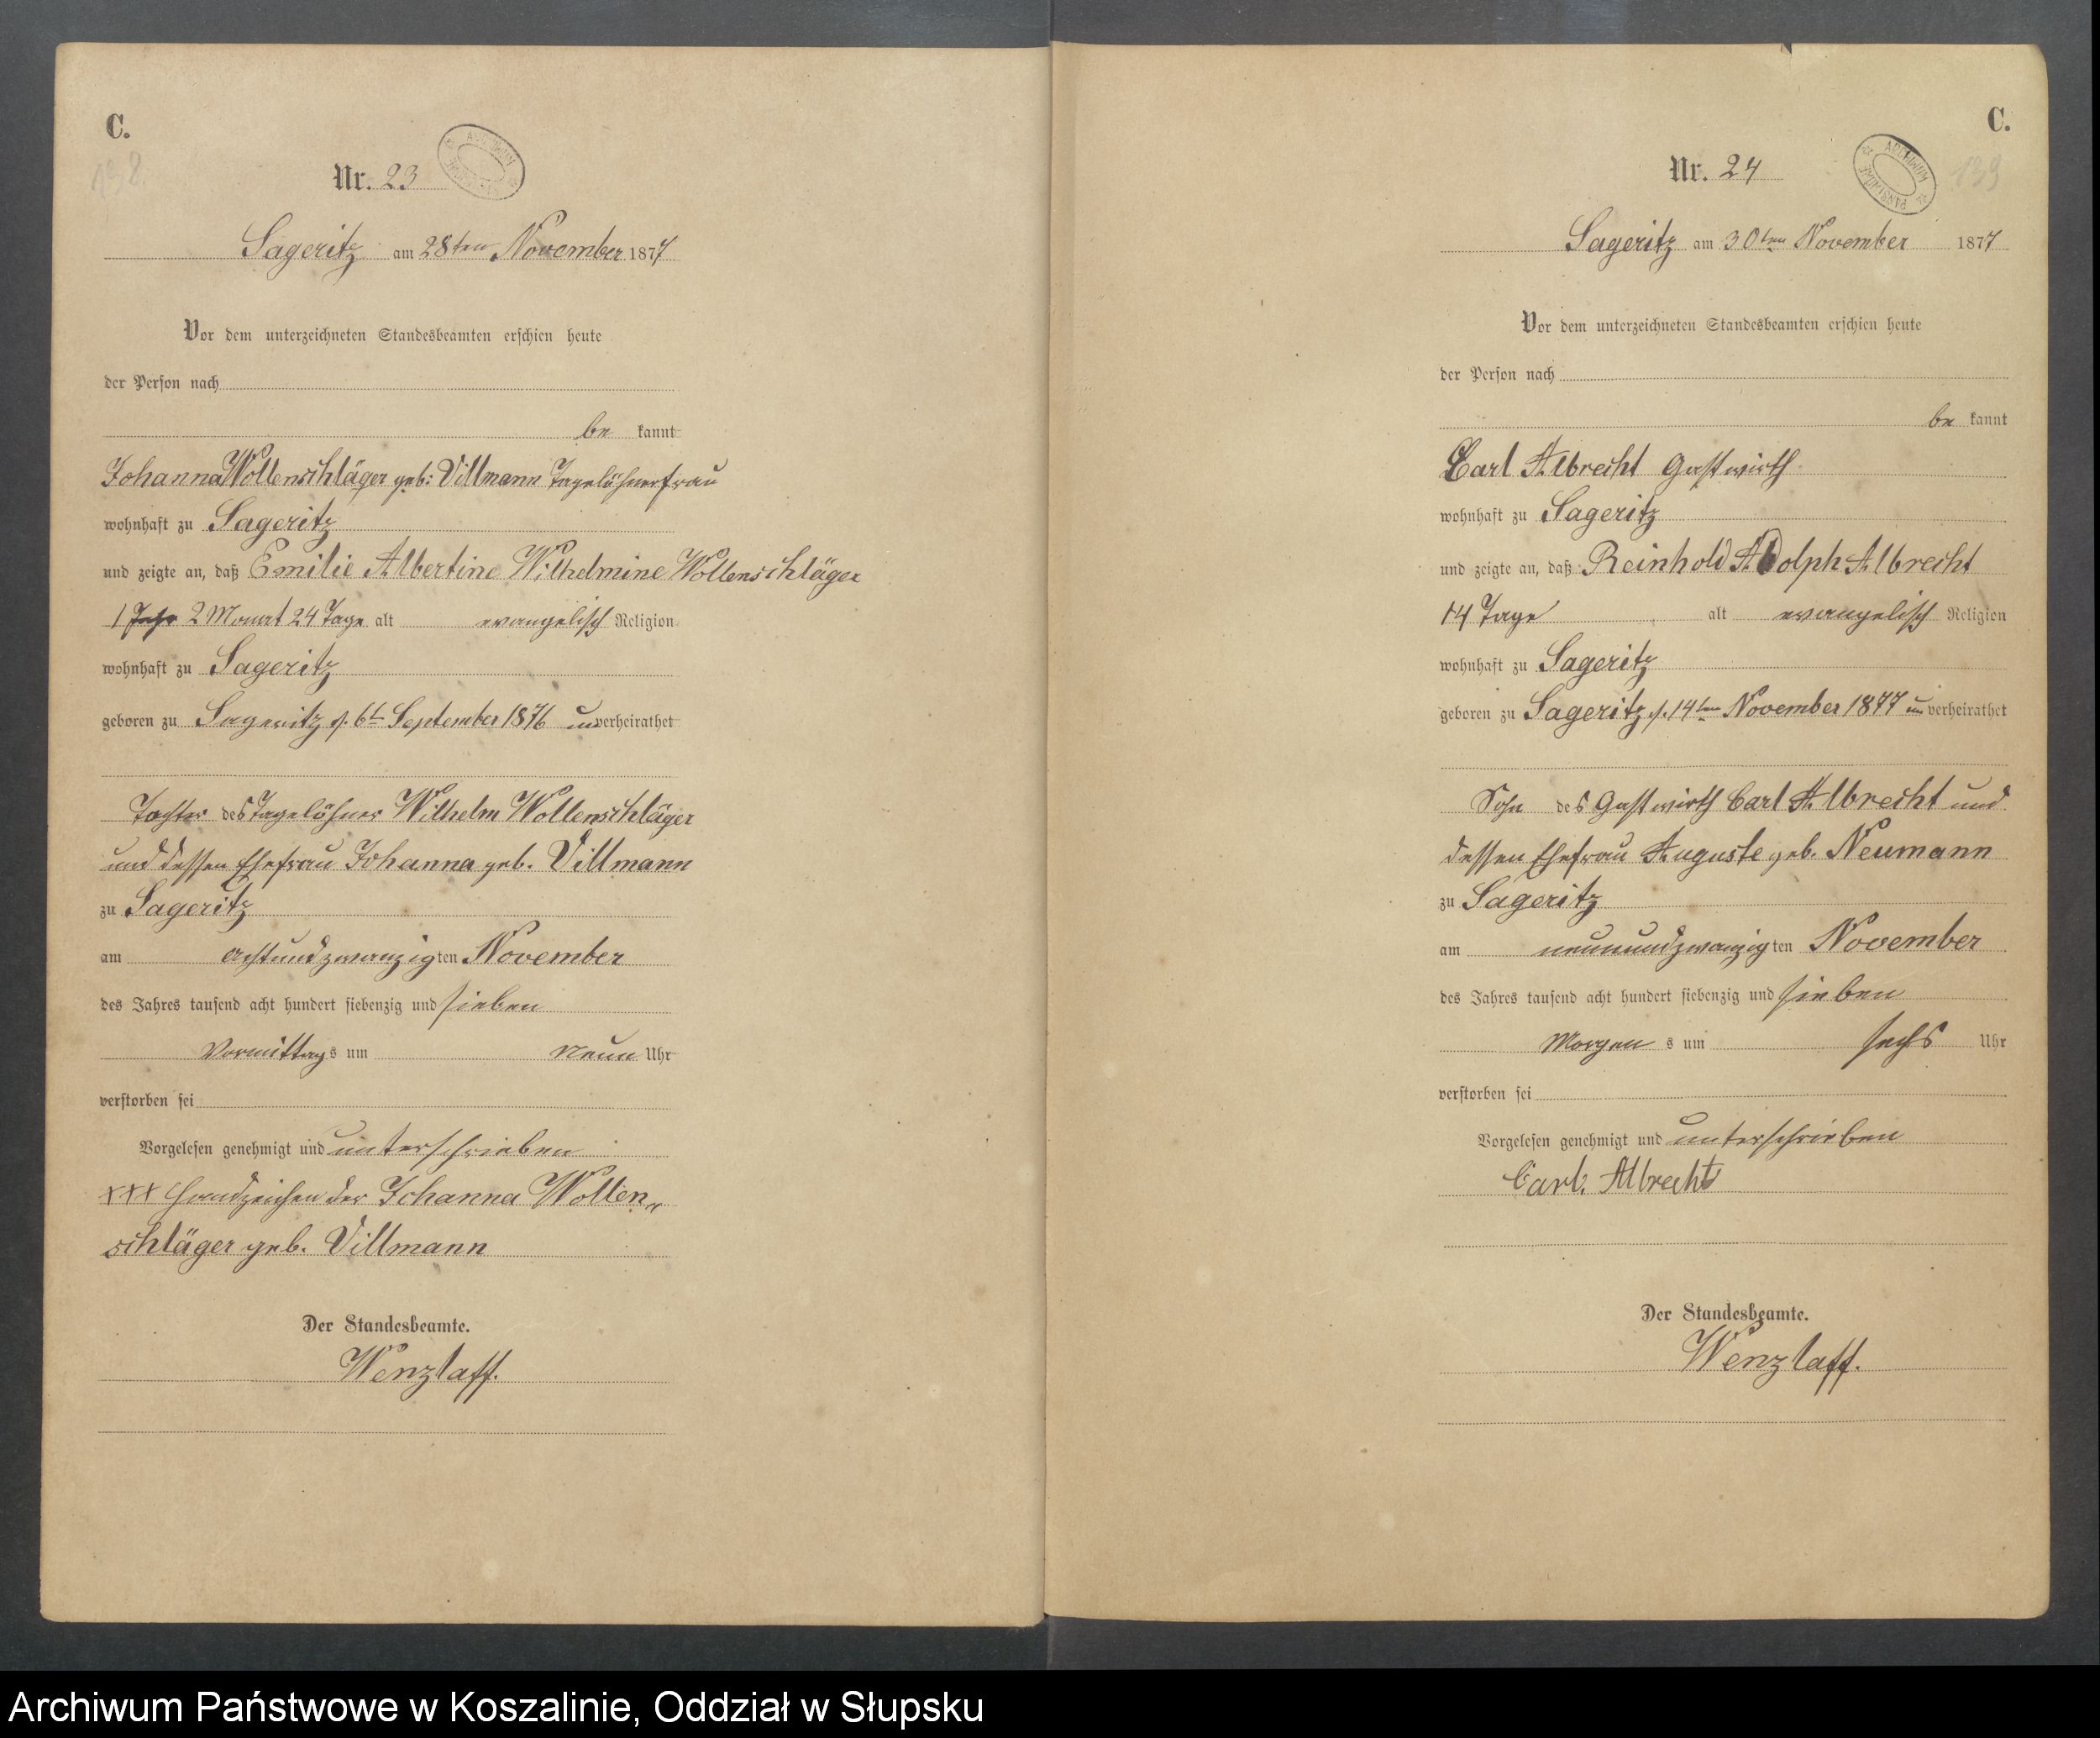 C.
138
Nr. 23
Sageritz am 28ten November 1877
Vor dem unterzeichneten Standesbeamten erschien heute
der Person nach
be kannt
Johanna Wollenschläger geb: Villmann Tagelöhnerfrau
wohnhaft zu Sageritz
und zeigte an, daß Emilie Albertine Wilhelmine Wollenschläger
1 Jahr 2 Monat 24 Tage alt evangelisch Religion
wohnhaft zu Sageritz
geboren zu Sageritz d. 6t September 1876 unverheirathet
Tochter des Tagelöhner Wilhelm Wollenschläger
und dessen Ehefrau Johanna geb. Villmann
zu Sageritz
am achtundzwanzigten November
des Jahres tausend acht hundert siebenzig und sieben
Vormittags um neun Uhr
verstorben sei
Vorgelesen genehmigt und unterschrieben
+++ Handzeichen der Johanna Wollen„
schläger geb. Villmann
Der Standesbeamte.
Wenzlaff.
C.
139
ARCHIWUM PAŃSTWOWE
Nr. 24
Sageritz am 30ten November 1877
Vor dem unterzeichneten Standesbeamten erschien heute
der Person nach
be kannt
Carl Albrecht Gastwirth
wohnhaft zu Sageritz
und zeigte an, daß Reinhold Adolph Albrecht
14 Tage alt evangelisch Religion
wohnhaft zu Sageritz
geboren zu Sageritz d. 14ten November 1877 unverheirathet
Sohn des Gastwirth Carl Albrecht und
dessen Ehefrau Auguste geb. Neumann
zu Sageritz
am neunundzwanzigten November
des Jahres tausend acht hundert siebenzig und sieben
Morgen s um sechs Uhr
verstorben sei
Vorgelesen genehmigt und unterschrieben
Carl. Albrecht
Der Standesbeamte.
Wenzlaff.
Archiwum Państwowe w Koszalinie, Oddział w Słupsku